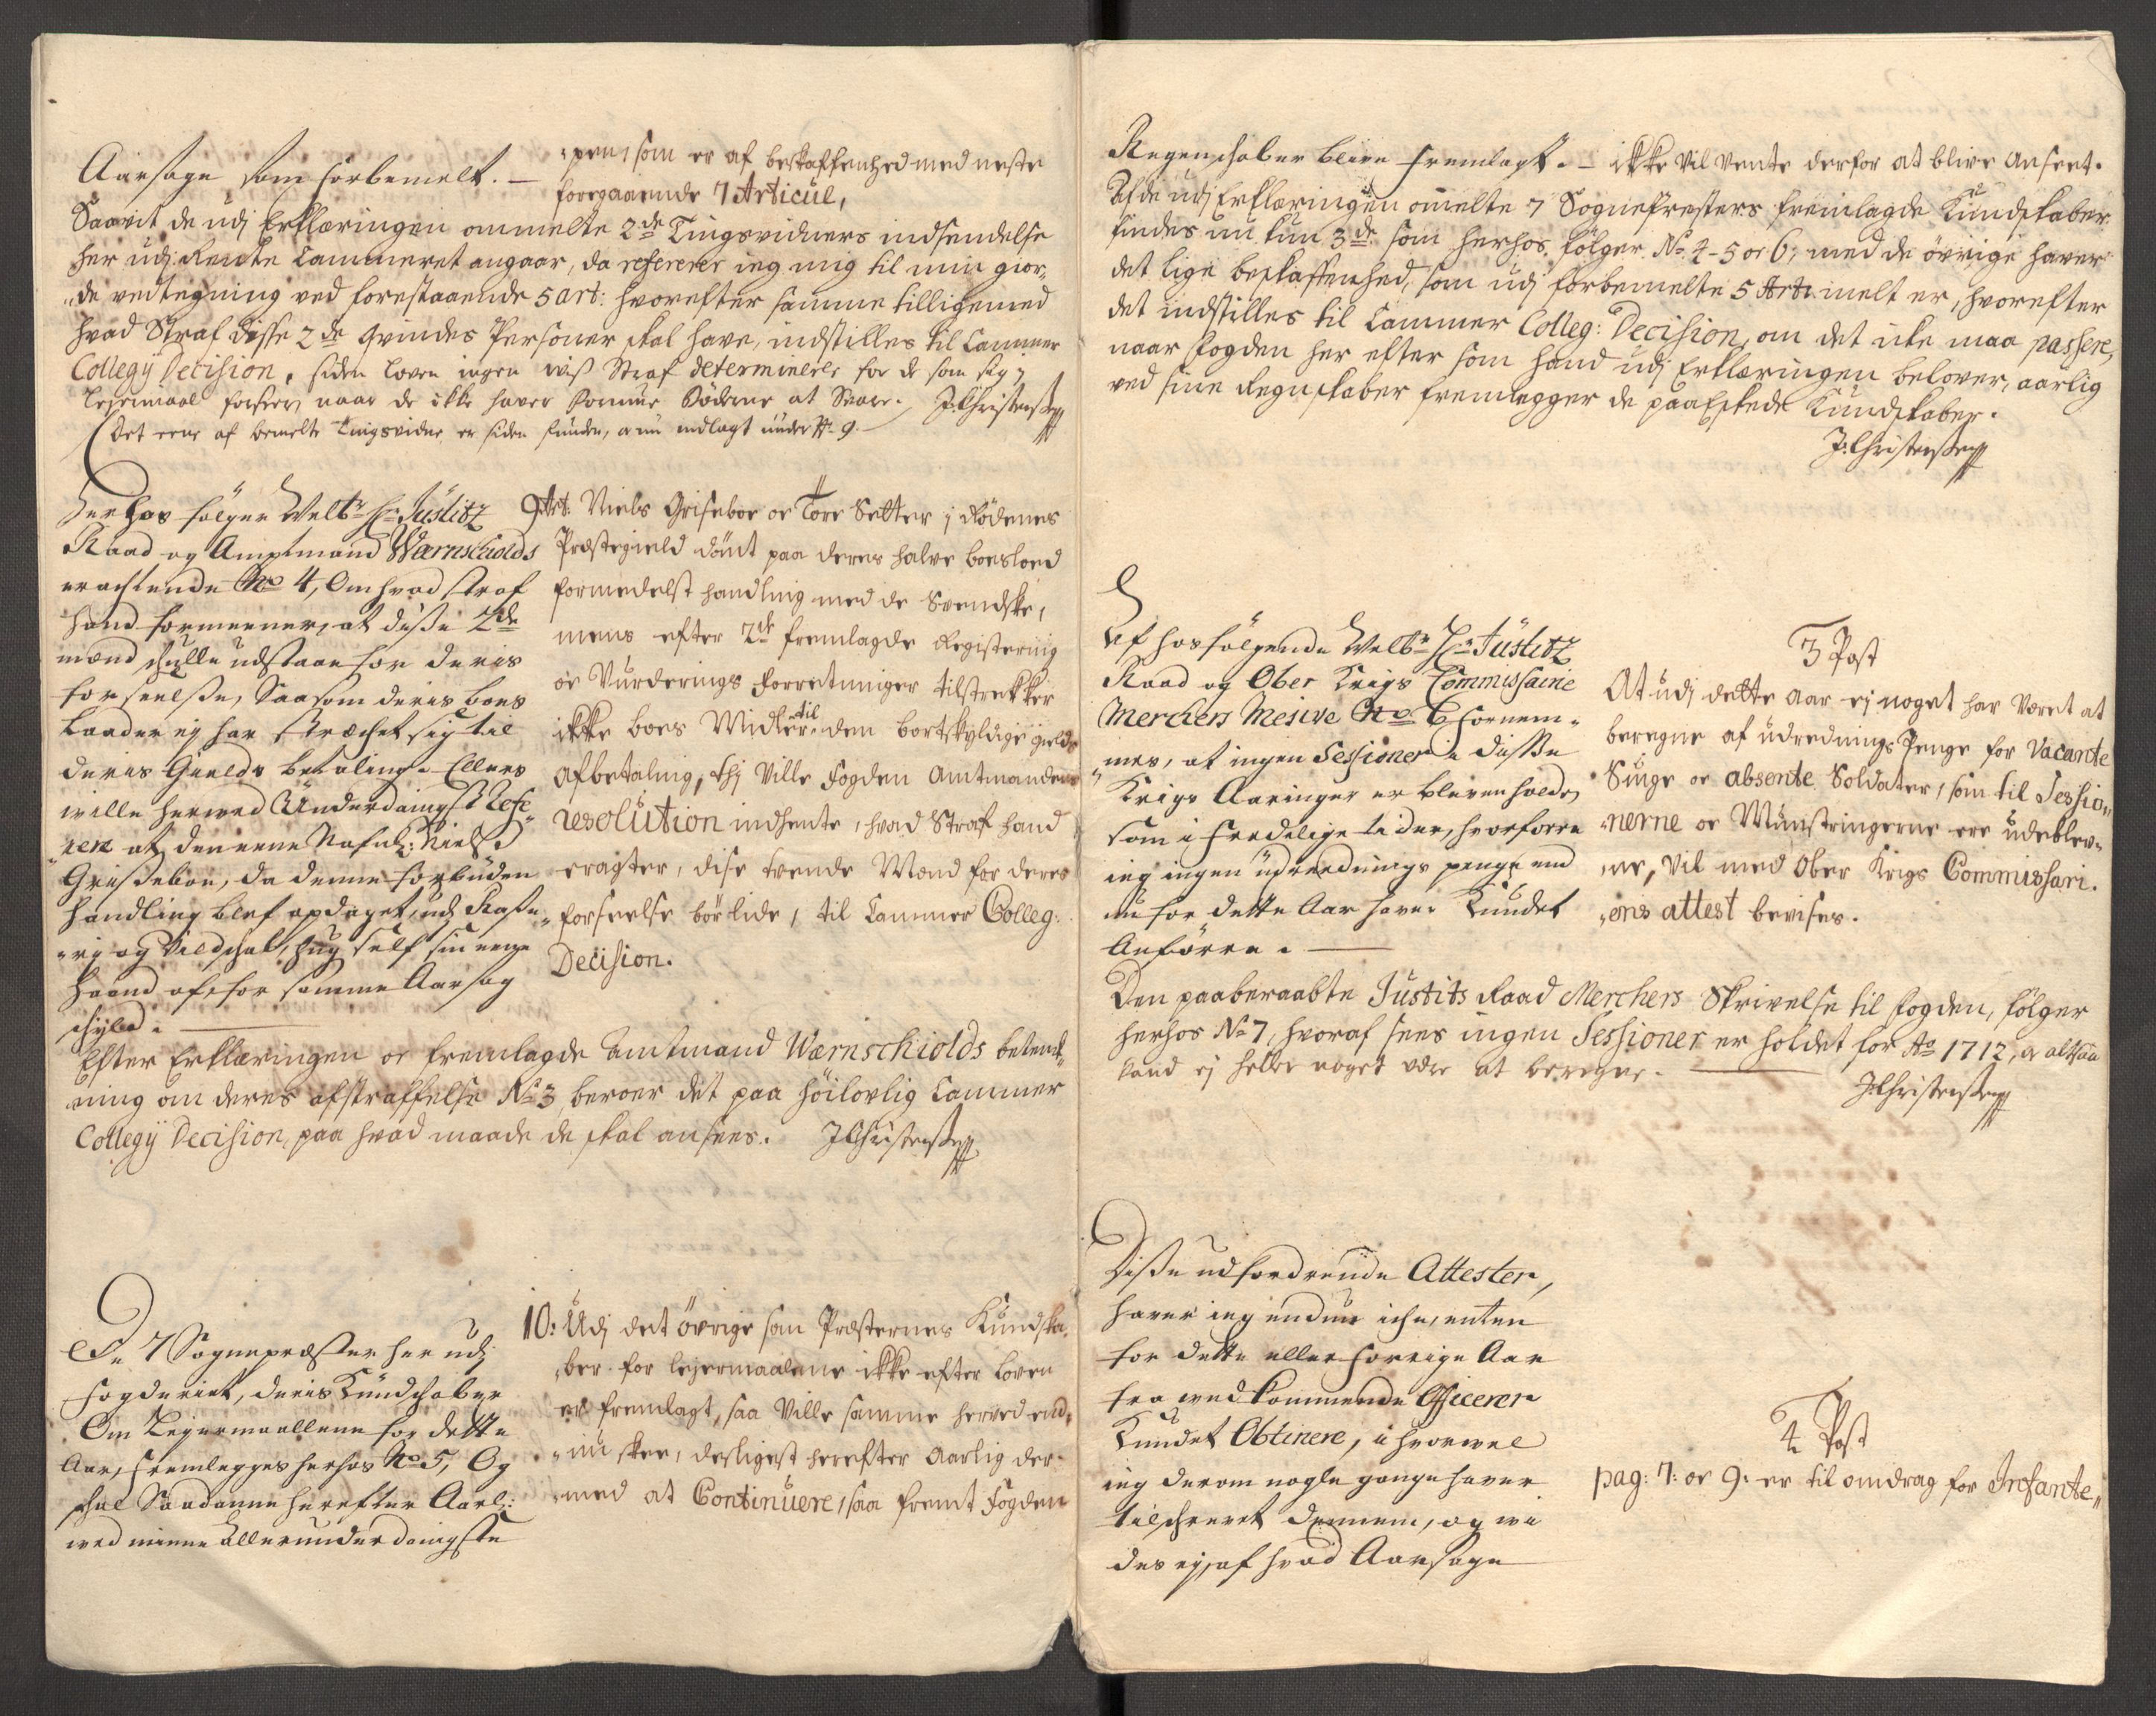 Aarsage som forbemelt. —
„pen, som er af beskaffenhed med neste
foregaaende 7 Articul,
Saavit de udj Erklæringen ommelte 2de Tingsvidners indsendelse
her udj Rente Cammeret angaar, da refererer ieg mig til min gior„
„de vedtegning ved forestaaende 5 art: hvorefter samme tilligemed
hvad Straf disse 2de Qvindes Personer skal have, indstilles til Cammer
Collegij Decision, siden Loven ingen viss Straf determinerer for de som sig i
Lejermaal forseer, naar de ikke haver Formue Bøderne at Svare. J:Christenssen
Det eene af bemelte Tingsvidne er siden funden, og nu indlagt under No 9.
Herhos følger Velbr Hr Justitz
Raad og Amptmand Wærnschiolds
erachtende No 4, Om hvad straf
hand formeener, at disse 2de
mænd schulle udstaae for deris
forseelsse, Saasom deris boes
Laader ej har stræchet sig til
deris Gields betaling. Ellers
wille herved Underdanigst Refe„
„rere at den eene Nafnl: Niels
Grisseboe, da denne forbuden
handling blef opdaget, udj Rase„
„rj og Vildschab, hug self sin eene
Haand af, for samme Aarsag
schyld.
9 Art. Niels Griseboe oc Tore Setter i Rødenes
Præstegield dømt paa deres halve boeslod
formedelst handling med de Svendske,
mens efter 2de fremlagde Registering
oc Vurderings Forretninger tilstrekker
ikke boes Midler til den bortskyldige gields
afbetaling, thj Ville Fogden Amtmandens
resolution indhente, hvad Straf hand
eragter, dise tvende Mænd for deres
forseelse bør lide, til Cammer Colleg:
Decision.
Efter Erklæringen oc fremlagde Amtmand Wærnschiolds betenk„
„ning om deres afstraffelse No 3, beroer det paa høilovlig Cammer
Collegij Decision, paa hvad maade de skal ansees. J Christenssen
De 7 Sognepræster her udj
fogderiet, deris Kundschaber
Om Lejermaallene for dette
Aar, fremlegges herhos No 5, Og
schal Saadanne herefter Aarl:
ved minne Allerunderdanigste
10: Udj det øvrige som Præsternes Kundska„
„ber for lejermaalene ikke efter Loven
er fremlagt, saa Ville samme herved end„
„nu skee, desligest herefter Aarlig der„
„med at Continuere, saa fremt Fogden
Regenschaber blive fremlagt. —
ikke Vil vente derfor at blive anseet.
Af de udj Erklæringen omelte 7 Sognepresters fremlagde Kundskaber
findes nu kun 3de som herhos følger No. 4-5 oc 6; med de øvrige haver
det lige beskaffenhed, som udj forbemelte 5 Art: melt er, hvorefter
det indstilles til Cammer Colleg: Decision, om det icke maa passere,
naar fogden her efter som hand udj Erklæringen belover, aarlig
ved sine Regnskaber fremlegger de paaEskede Kundskaber.
J:Christenssen
Af hosfølgende Velbr Hr Justitz
Raad og Ober Krigs Commissaire
Merchers Mesive No 6 fornem„
„mes, at ingen Sessioner i disse
Krigs Aaringer er bleven holden
som i fredelige tider, hvorforre
ieg ingen udreednings penge end
nu for dette Aar haver Kundet
Anførre. —
3 Post
At udj dette aar ej noget har Været at
beregne af udrednings Penge for Vacante
Numre oc absente Soldater, som til Sessio„
„nerne oc Munstringerne ere udeblev„
„ne, Vil med Ober Krigs Commissari„
„ens attest bevises.
Den paaberaabte Justits Raad Merchers Skrivelse til fogden, følger
herhos No 7, hvoraf sees ingen Sessioner er holdet for Ao 1712, og altsaa
kand ej heller noget være at beregne. —
J:Christenssen
Disse udfordrende Attester,
haver ieg endnu iche, enten
for dette eller forrige Aar
fra vedkommende Officerer
Kundet Obtinere, i hvorvel
ieg derom nogle gange haver
tilschrevet dennem, og wi
des ej, af hvad Aarsage
4 Post
pag: 7: oc 9. er til omdrag for Infante„